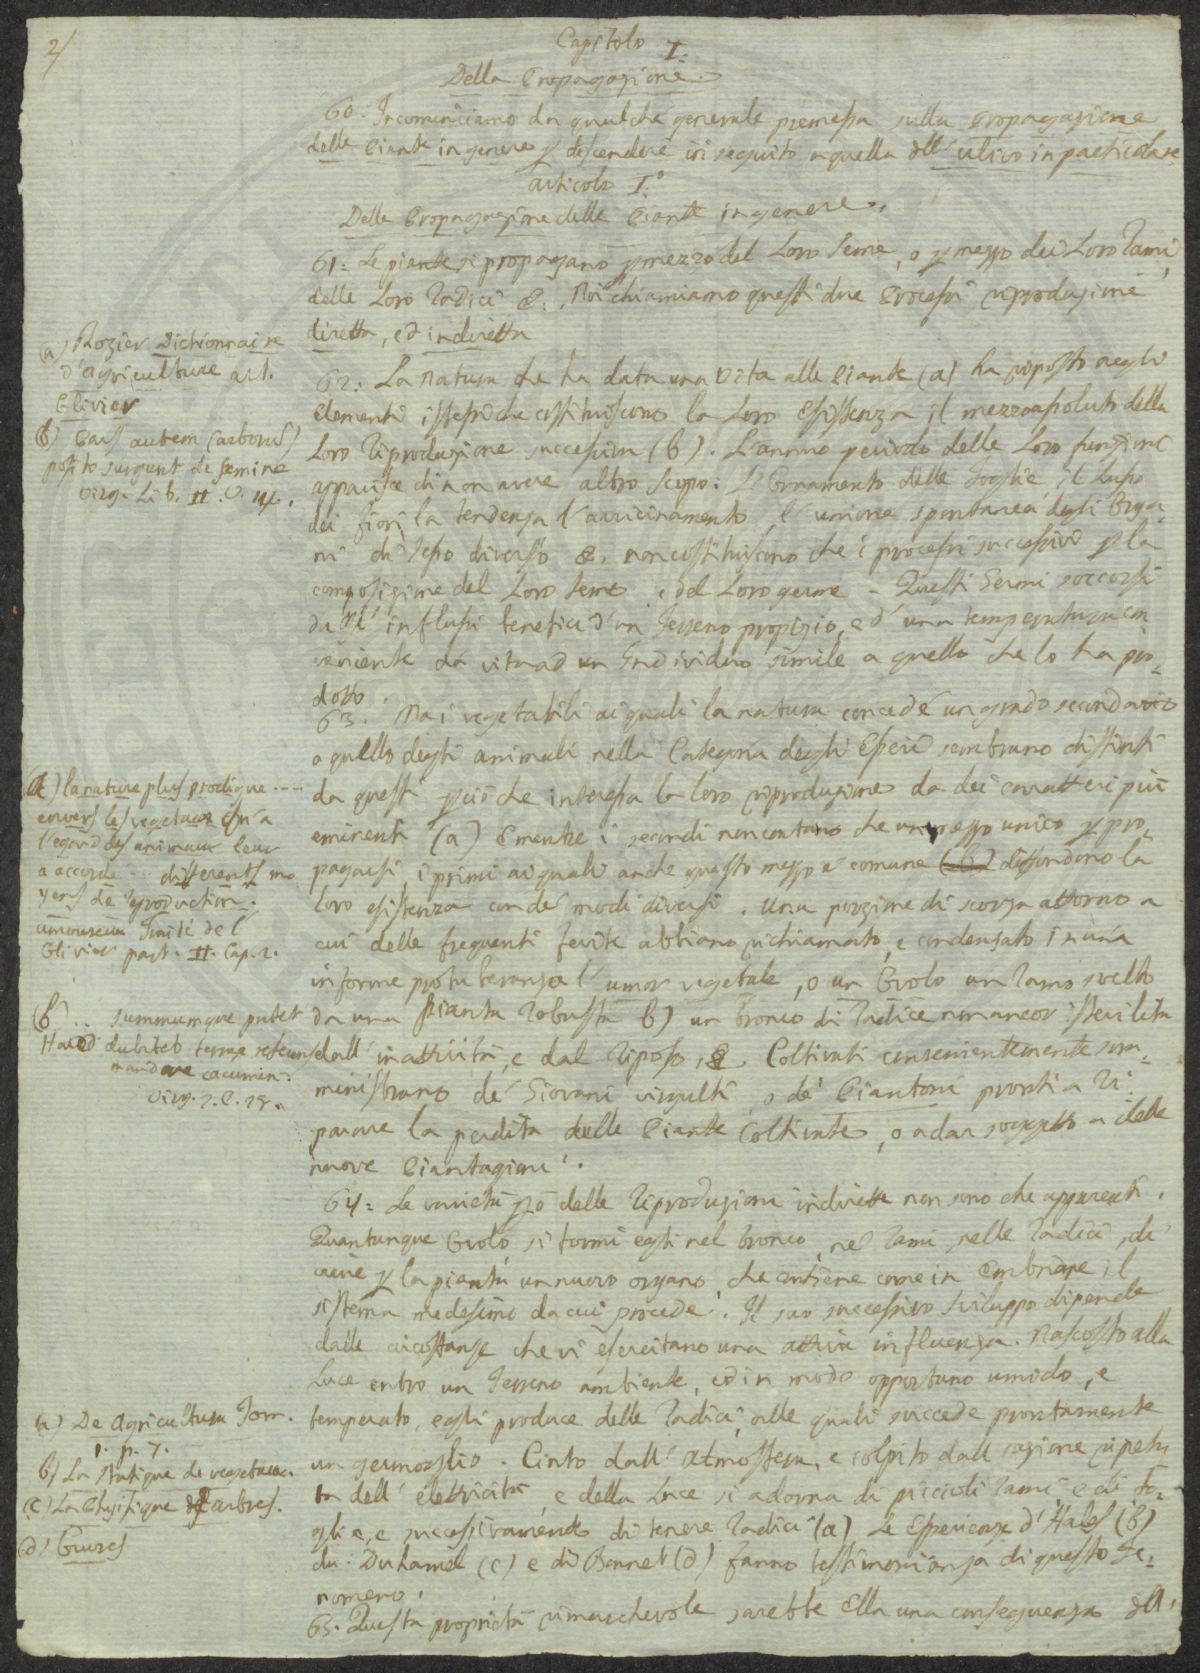 2/
Capitolo I.
Della Propagazione.
60. Incominciamo da qualche generale premessa sulla Propagazione
delle Piante in genere p descendere in seguito a quella dell' ulivo in particolare
articolo I.°
Della Propagazione delle Piante in genere.
61. Le piante si propagano p mezzo del Loro Seme, o p mezzo dei Loro Rami,
delle Loro Radici &. Noi chiamiamo questi due Processi riproduzione
diretta, ed indiretta
62. La Natura che ha data una Vita alle Piante (a) ha riposto negli
Elementi istessi che costituiscono la Loro Esistenza il mezzo assoluto della
Loro Riproduzione successiva (b). L'annuo periodo delle Loro funzioni
apparisce di non avere altro scopo: L'Ornamento delle Foglie, il Lusso
dei fiori, la tendenza l'avvicinamento, l'unione spontanea degli Orga-
ni di sesso diverso &. non costituiscono che i processi successivi p la
composizione del Loro seme, e del Loro germe - Questi Germi soccorsi
dagl' influssi benefici d'un Terreno propizio, e d'una temperatura con
veniente dà vita ad un Individuo simile a quello che lo ha pro-
dotto.
63. Ma i vegetabili ai quali la natura concede un grado secondario
a quello degli animali nella Categoria degli Esseri sembrano distinti
da questi p ciò che interessa la loro riproduzione da dei caratteri più
eminenti (a) Ementre i secondi non contano che un mezzo unico p pro-
pagarsi, i primi ai quali anche questo mezzo è comune (b) diffondono la
loro esistenza con de' modi diversi. Una porzione di scorza attorno a
cui delle frequenti ferite abbiano richiamato, e condensato in una
informe protuberanza l'umor vegetale, o un Ovolo un Ramo svelto
da una Pianta Robusta b) un tronco di Radice non ancor isterilita
dall' inattività, e dal Riposo, &. Coltivati convenientemente som-
ministrano de' Giovani virgulti, o de' Piantoni pronti a Ri
parare la perdita delle Piante Coltivate, o a dar soggetto a delle
nuove Piantagioni.
64. Le varietà pò delle Riproduzioni indirette non sono che apparenti.
Quantunque Ovolo si formi egli nel tronco, ne' Rami, nelle Radici, di
viene p la pianta un nuovo organo, che contiene come in Embrione il
sistema medesimo da cui procede. Il suo successivo sviluppo dipende
dalle circostanze che vi esercitano una attiva influenza. Nascosto alla
Luce entro un Terreno ambiente, ed in modo opportuno umido, e
temperato, egli produce delle Radici, alle quali succede prontamente
un germoglio. Cinto dall' Atmosfera, e colpito dall' azione ripetu
ta dell' elettricità, e della Luce si adorna di piccioli Rami e di Fo-
glie, e successivamente di tenere Radici (a) Le Esperienze d'Hales (b)
du Duhamel (c) e di Bonnet (d) fanno testimonianza di questo Fe-
nomeno.
65. Questa proprietà rimarchevole sarebbe Ella una conseguenza dell'
(a) Rozier Dictionnaire
d'agriculture art.
Olivier
(b) Pars autem (arbores)
posito surgunt de semine
Virg. Lib. II. V. 14.
(a) la nature plus prodigue ....
envers les vegetaux qu'a
l'egard des animaux leur
a accordé ... differents mo
yens de reproduction.
amoureux Traité de l'
Olivier part. II. Cap. 2.
(b) .. summumque putator
Haud dubitet terrae referens
mandare cacumen.
Virg. 2. V. 28.
(a) De Agricultura Tom.
1. p. 7.
b) La Statique de vegetaux.
(c) La Phisique des arbres.
(d) Œuvres